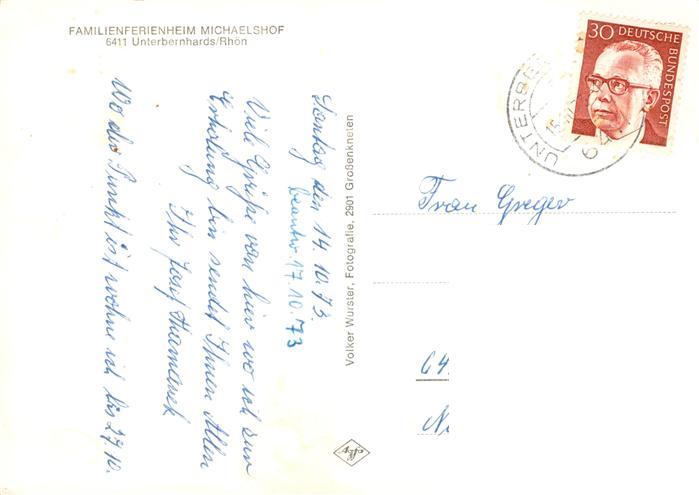 FAMILIENFERIENHEIM MICHAELSHOF
6411 Unterbernhards/Rhön
Sontag den 14.10.73.
beantw. 17.10.73
Viele Grüße von hier wo ich zur
Erholung bin sendet Ihnen Allen
Ihr Josef
Wo der Punkt ist wohne ich bis 27.10.
Volker Wurster, Fotografie, 2901 Großenkneten
30 DEUTSCHE BUNDESPOST
UNTERBE
64
Frau Greger
64
N
Agfa